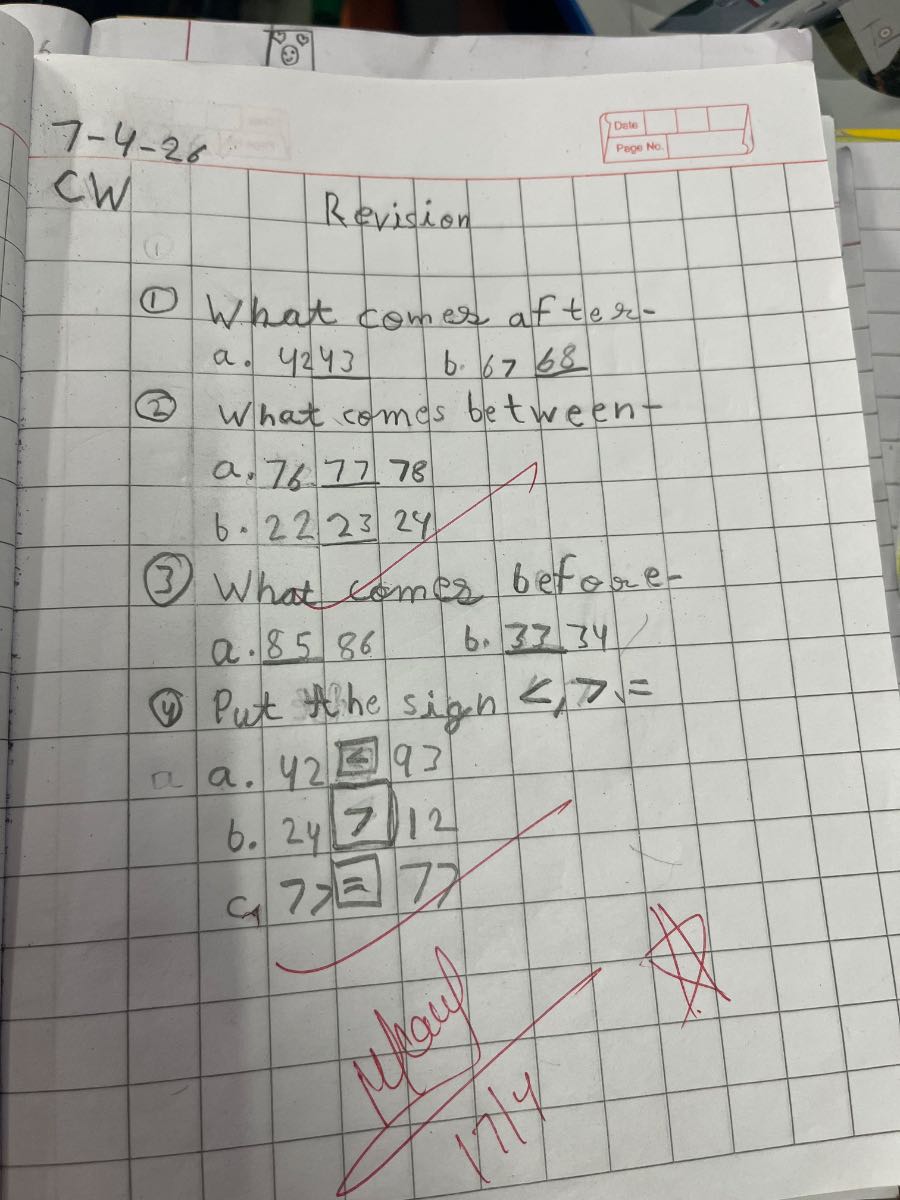 Date
Page No.
7-4-26
CW
Revision
① What comes after-
a. 42 43 b. 67 68
② What comes between-
a. 76 77 78
b. 22 23 24
③ What comes before-
a. 85 86 b. 33 34
④ Put the sign <, >, =
a a. 42 < 93
b. 24 > 12
c. 77 = 77
17/4